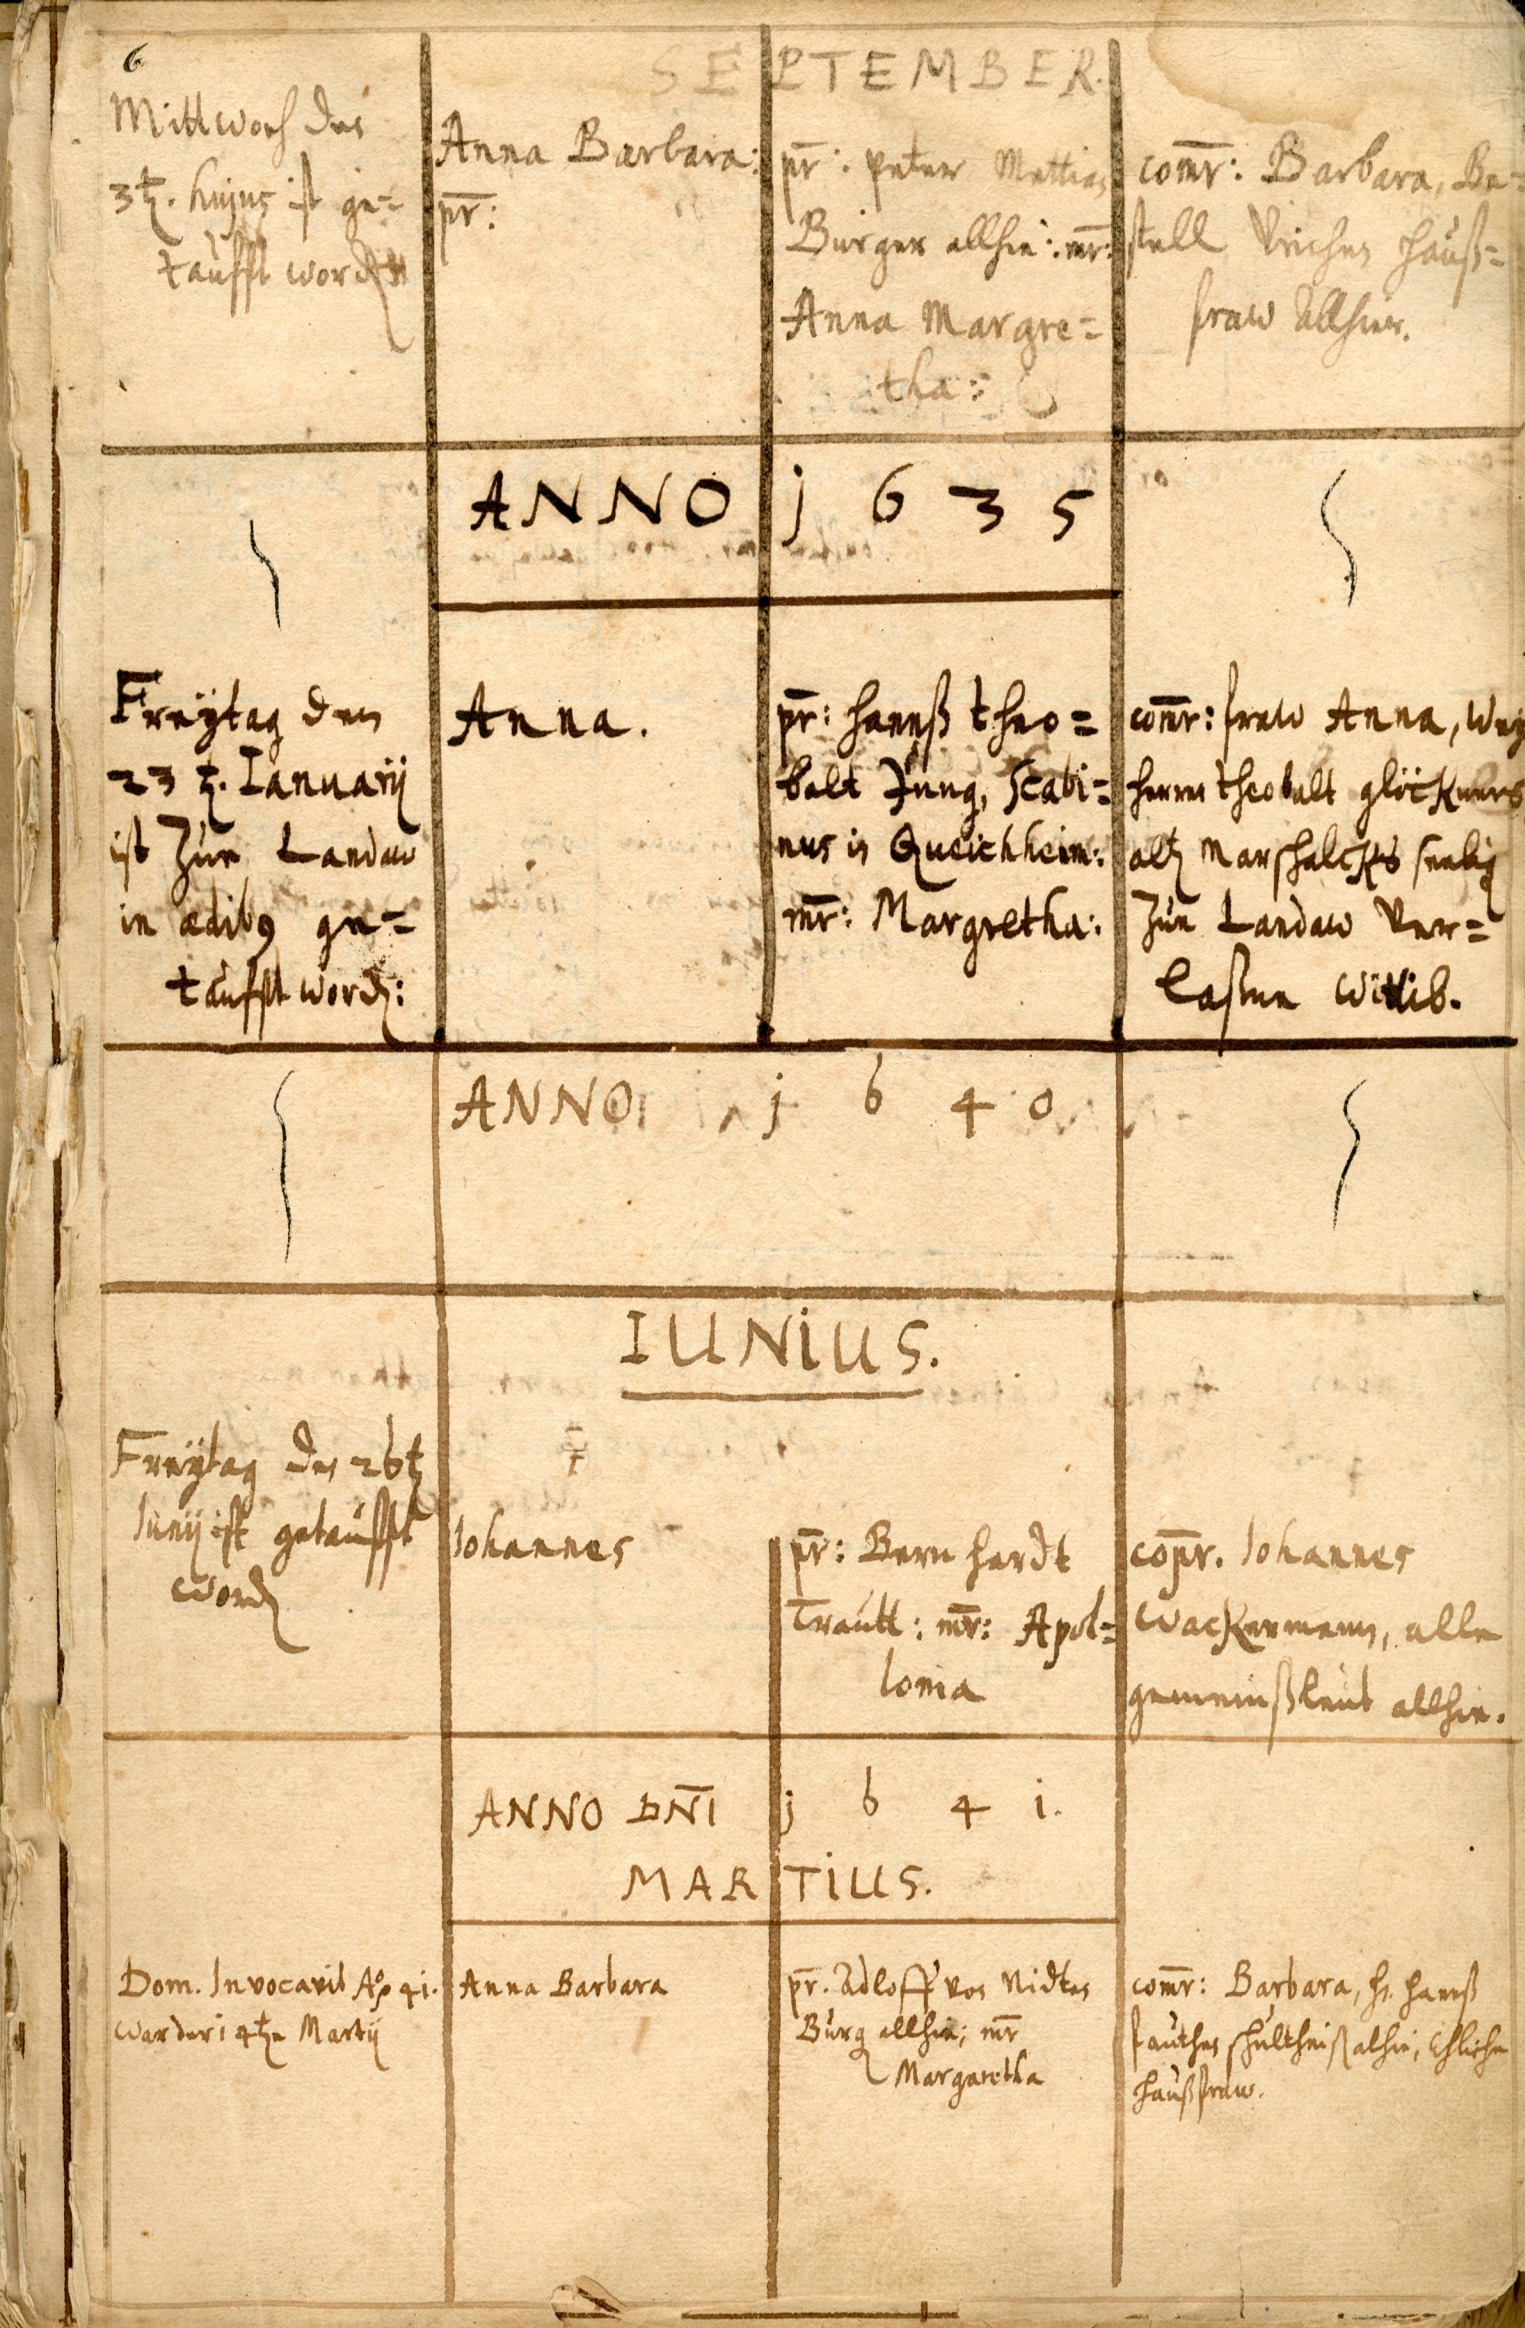 6
SEPTEMBER.
Mittwoch den
3t. hujus ist ge=
taufft worden
Anna Barbara:
pr:
pr: Peter Mattias
Burger allhie: mr:
Anna Margre=
tha:
comr: Barbara, Ba=
stell Vrichen hauß=
fraw allhier.
ANNO j 6 3 5
Freÿtag den
23 t. Ianuarij
ist Zur Landaw
in ædib9 ge=
taufft word:
Anna.
pr: hannß theo=
balt Jung, Scabi=
nus in Queichheim:
mr: Margretha:
comr: fraw Anna, weÿ
herrn theobalt glöckners
alt Marschalcks seelig
Zur Landaw Ver=
laßene wittib.
ANNO j 6 4 0
IUNIUS.
Freÿtag den 26t
Iunij ist getaufft
word
Iohannes
pr: Bernhardt
Trautt: mr: Apol=
lonia
copr. Iohannes
Wackermann, alle
gemeinßleut allhie.
ANNO DNI j 6 4 i.
MARTIUS.
Dom. Invocavit Ao 4i.
war der i4te Martij
Anna Barbara
pr. Adloff von Nidten
Burg allhie; mr
Margaretha
comr: Barbara, hr. hannß
fauthes schultheiß alhie, Ehliche
haußfraw.